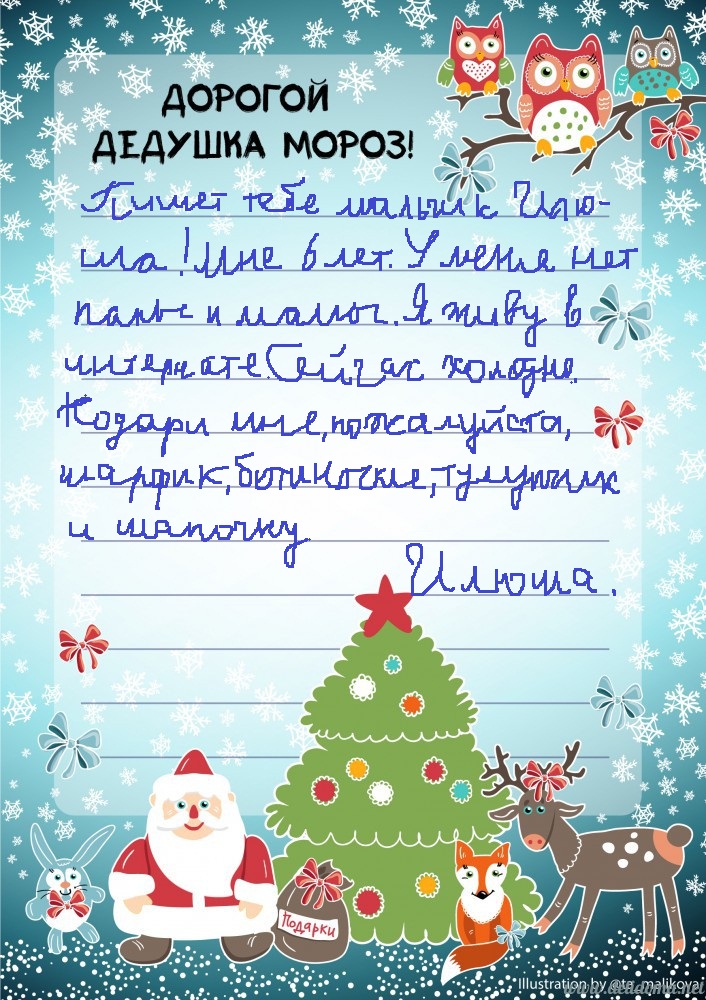 ДОРОГОЙ
ДЕДУШКА МОРОЗ!
Пишет тебе малыш Илю-
ша! Мне 6 лет. У меня нет
папы и мамы. Я живу в
интернате. Сейчас холодно.
Подари мне, пожалуйста,
шарфик, ботиночки, тулупчик
и шапочку
Илюша.
Подарки
Illustration by @ta_malikova
www.detdoma.net